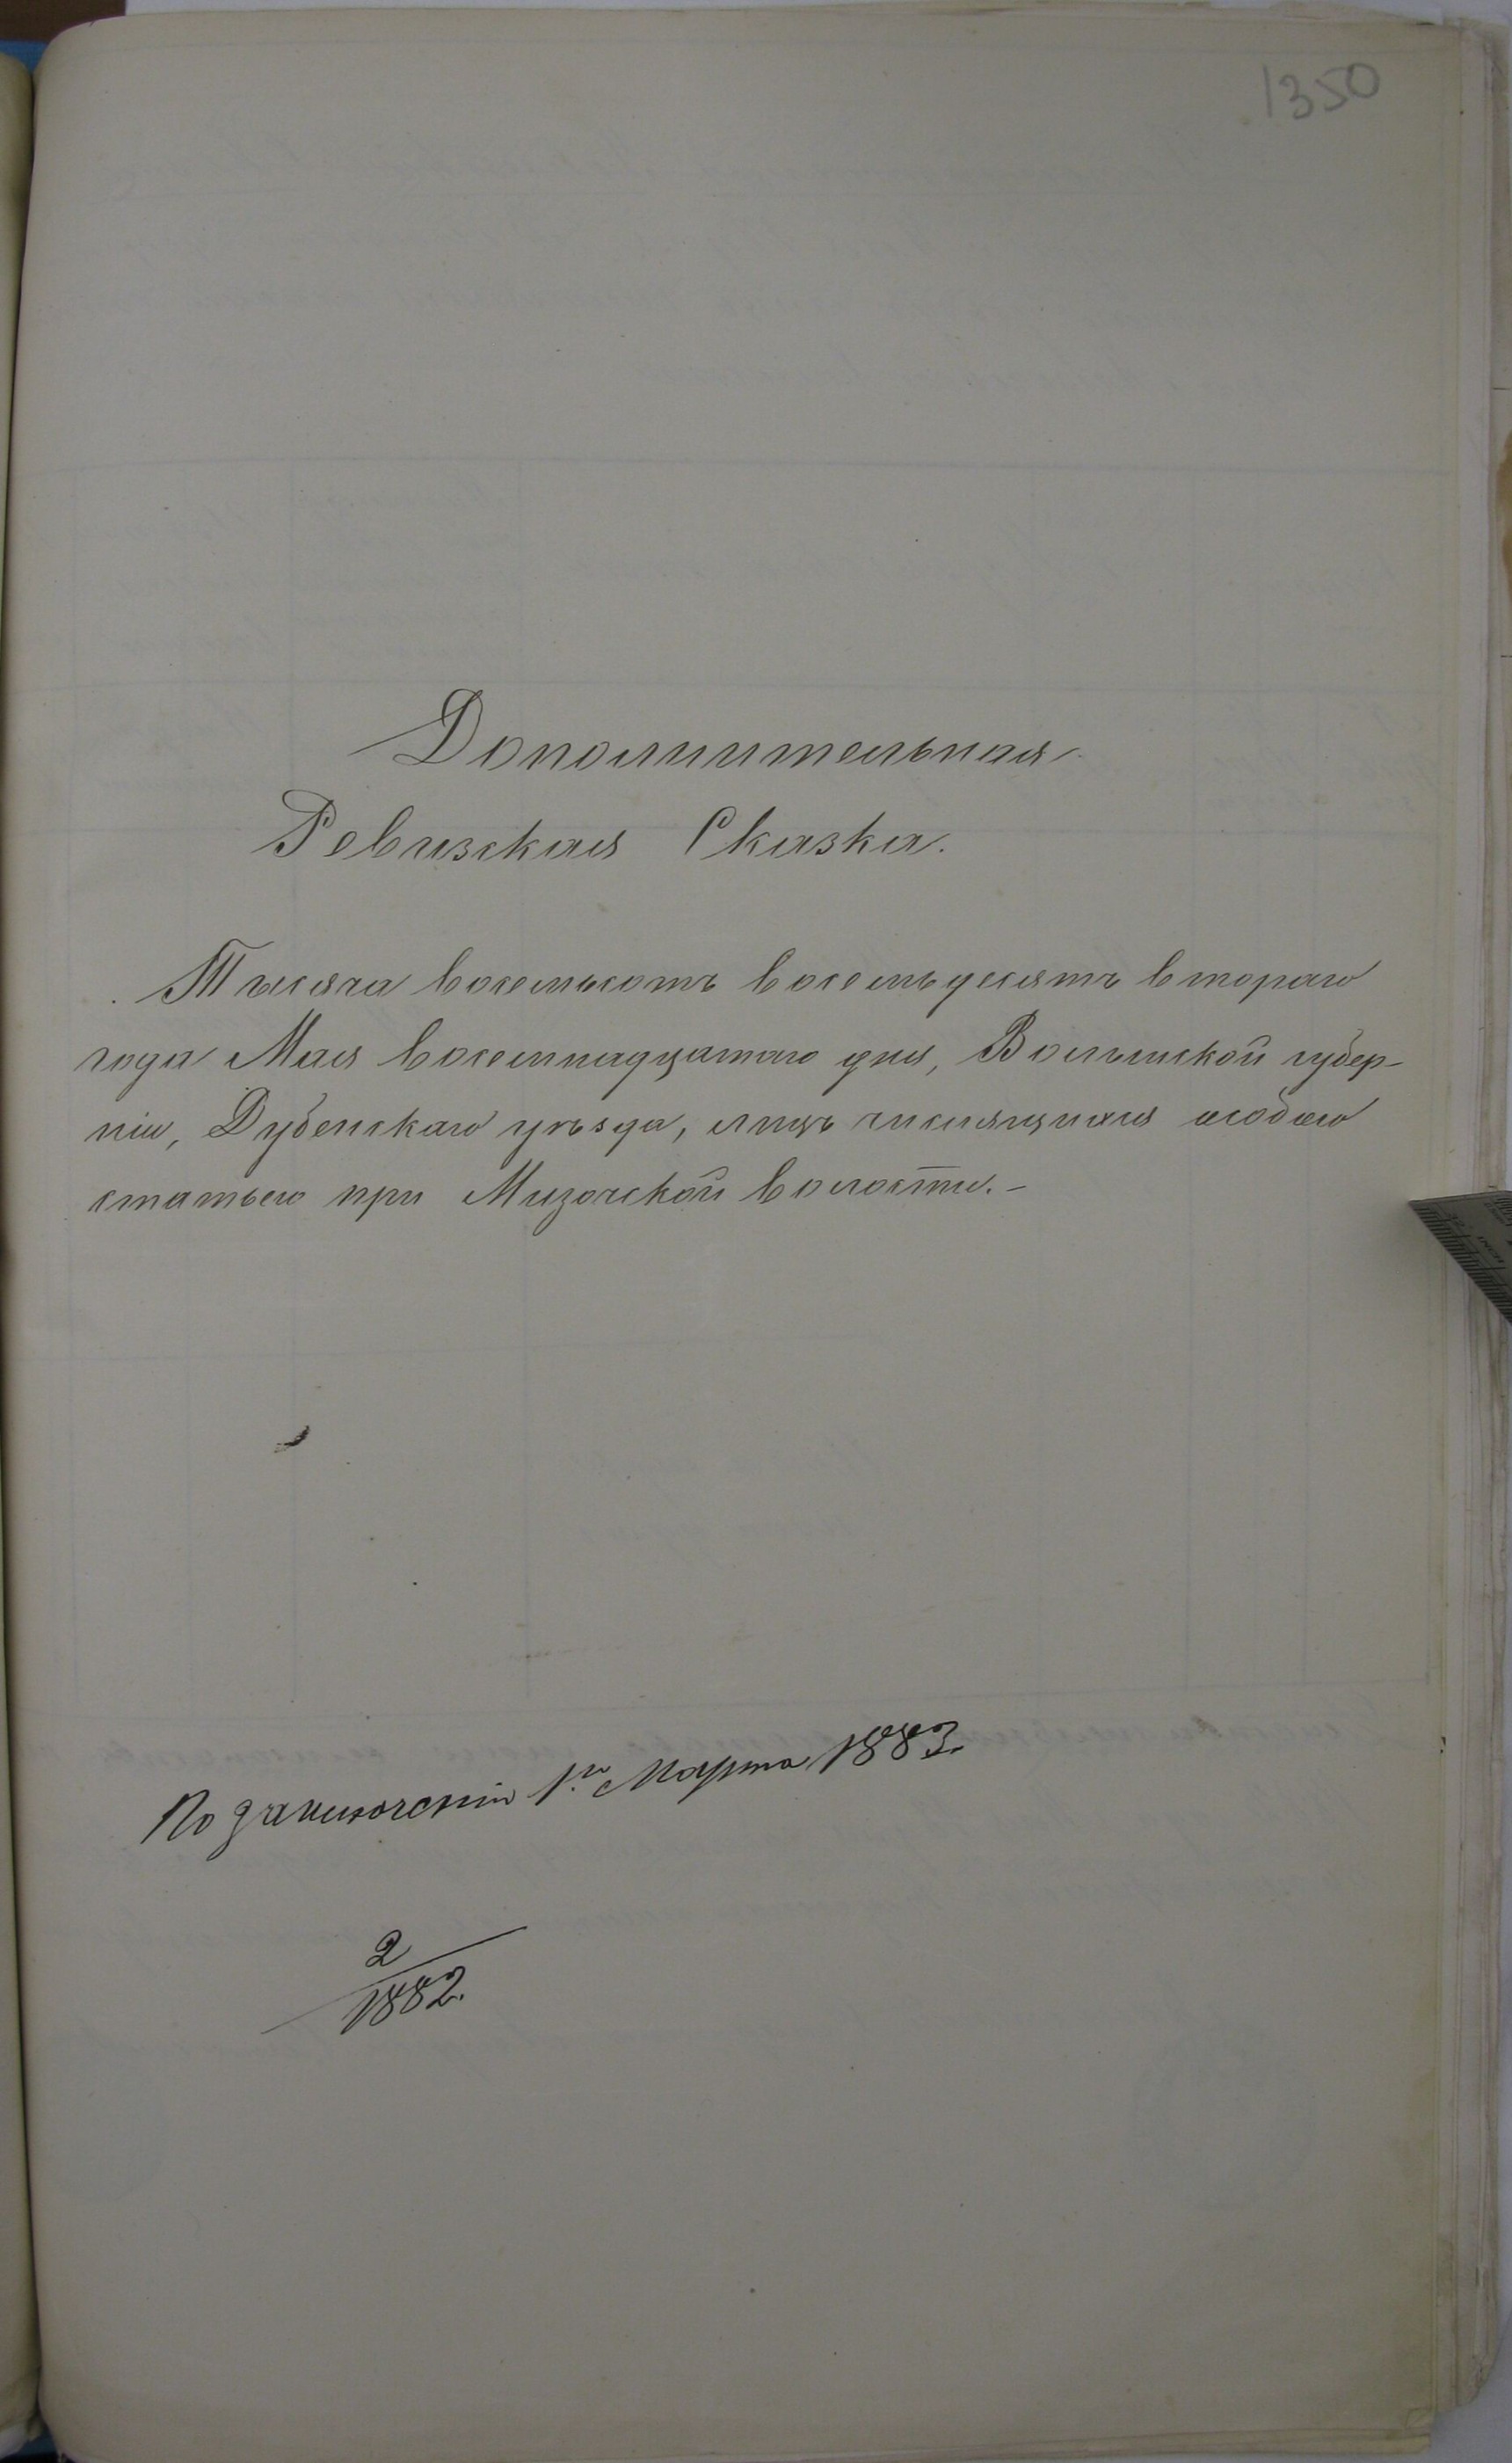 1350
Дополнительная
Ревизская Сказка.
Тысяча восемьсотъ восемьдесятъ втораго
года Мая восемнадцатаго дня, Волынской губер-
ніи, Дубенскаго уѣзда, лицъ числящихся особою
статьею при Мизочской волости.-
По заключенію 1го Марта 1883.
2
1882.